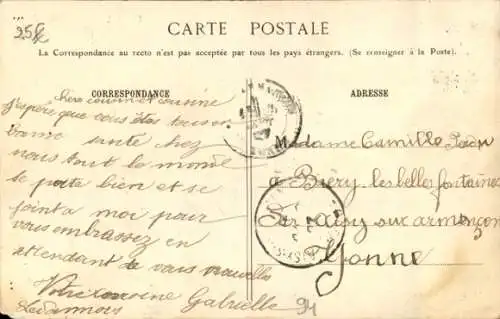 25f
CARTE POSTALE
La Correspondance au recto n'est pas acceptée par tous les pays étrangers. (Se renseigner à la Poste).
CORRESPONDANCE
chere cousin et cousine
j'espère que vous êtes tous en
bonne santé chez
nous tout le monde
se porte bien et se
joint a moi pour
vous embrassez en
attendant de vous nouvelles
Votre cousine Gabrielle
ADRESSE
Madame Camille
a Biery les belles fontaines
Par Aisy sur armençon
Yonne
94